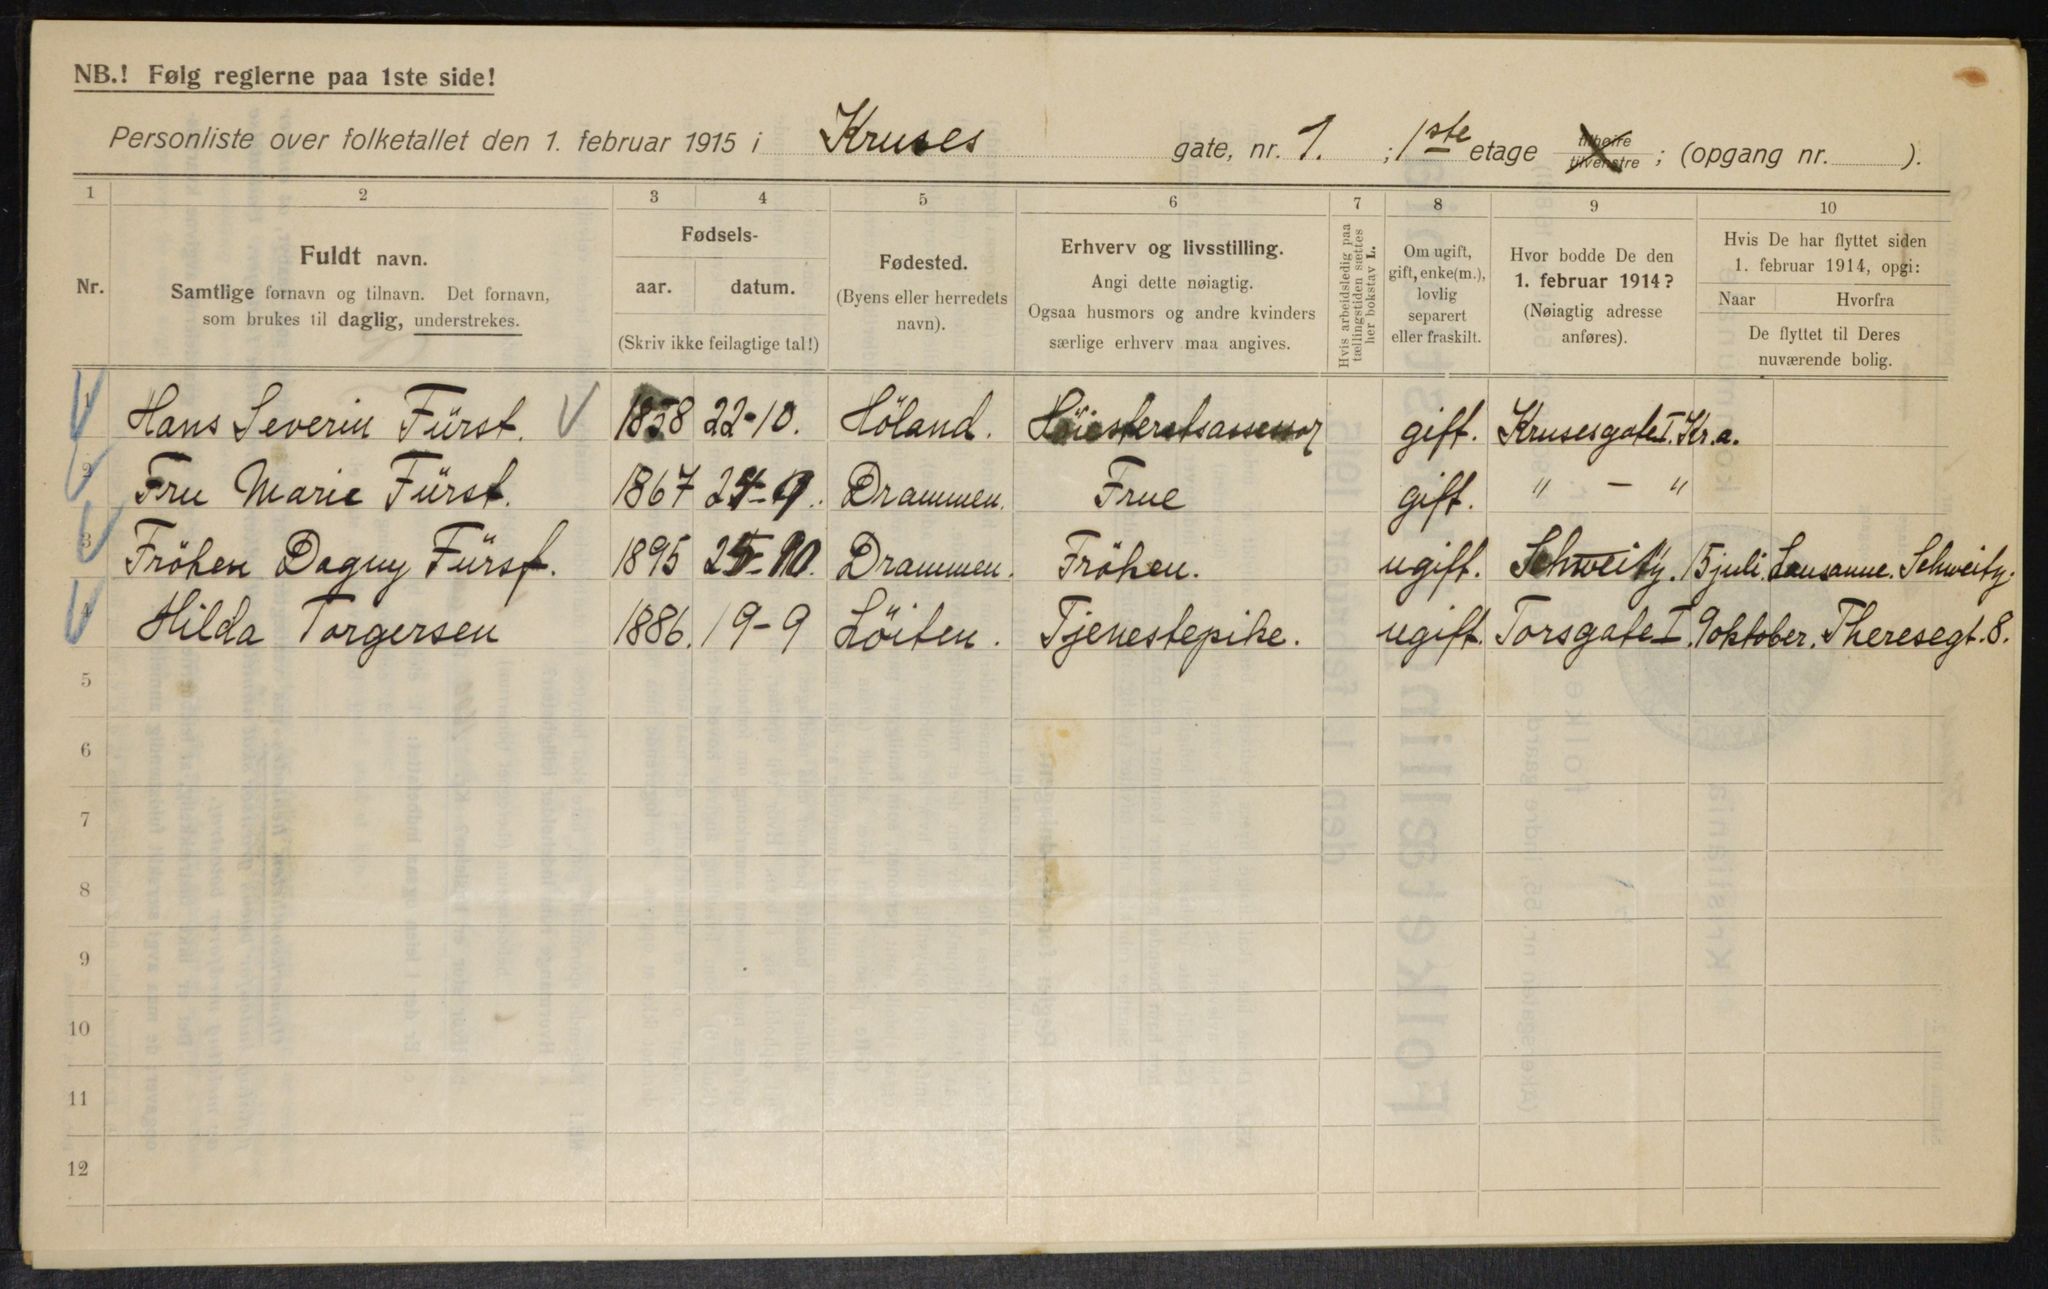 NB.! Følg reglerne paa 1ste side!
Personliste over folketallet den 1. februar 1915 i Kruses gate, nr. 1. ; 1ste etage tilhøire tilvenstre ; (opgang nr. ).
1 2 3 4 5 6 7 8 9 10
Nr.
Fuldt navn.
Samtlige fornavn og tilnavn. Det fornavn,
som brukes til daglig, understrekes.
Fødsels-
aar. datum.
(Skriv ikke feilagtige tal!)
Fødested.
(Byens eller herredets
navn).
Erhverv og livsstilling.
Angi dette nøiagtig.
Ogsaa husmors og andre kvinders
særlige erhverv maa angives.
Hvis arbeidsledig paa
tællingstiden sættes
her bokstav L.
Om ugift,
gift, enke(m.),
lovlig
separert
eller fraskilt.
Hvor bodde De den
1. februar 1914?
(Nøiagtig adresse
anføres).
Hvis De har flyttet siden
1. februar 1914, opgi:
Naar Hvorfra
De flyttet til Deres
nuværende bolig.
1 Hans Severin Fürst. 1858 22-10. Höland. Höiesteretsassessor gift. Krusesgate I. Kr.a.
2 Fru Marie Fürst. 1867 Drammen. Frue gift. " — "
3 Fröken Dagny Fürst. 1895 Drammen. Fröken. ugift. Schweitz. 15 juli. Lausanne. Schweitz.
4 Hilda Torgersen 1886. 19-9 Löiten. Tjenestepike. ugift. Torsgate I. 9 oktober. Theresegt. 8.
5
6
7
8
9
10
11
12